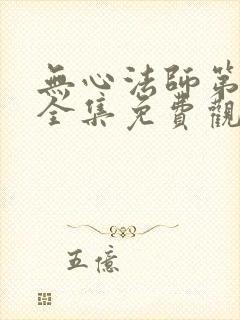 無心法師第
全集免費觀
五億